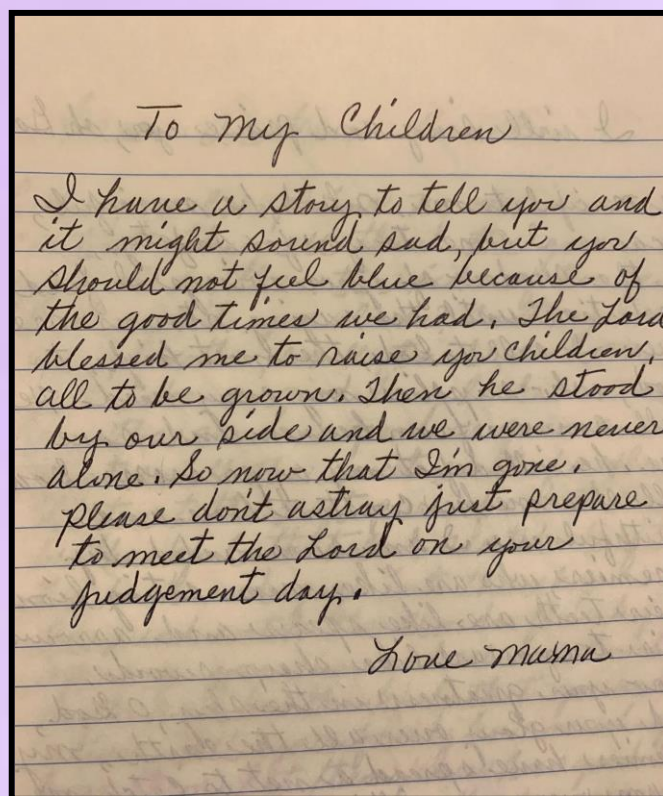 To My Children
I have a story to tell you and
it might sound sad, but you
should not feel blue because of
the good times we had. The Lord
blessed me to raise you children,
all to be grown. Then he stood
by our side and we were never
alone. So now that I'm gone.
please don't astray just prepare
to meet the Lord on your
judgement day.
Love Mama